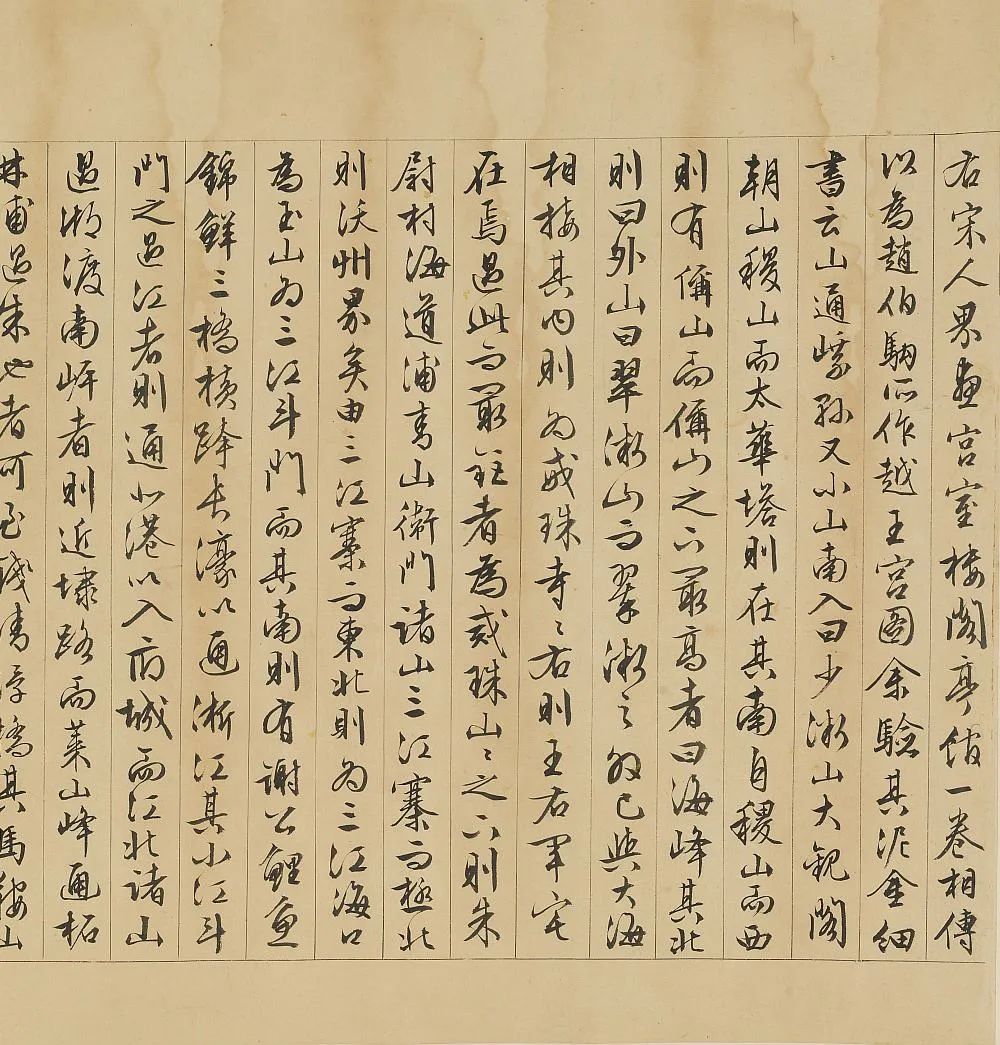 右宋人界畫宮室樓閣亭館一卷相傳
以為趙伯駒所作越王宮圖余驗其泥金細
書云山通峨孫又小山南入曰少微山大觀閣
朝山稷山而太華塔則在其南自稷山而西
則有偁山而偁山之六最高者曰海峰其北
則曰外山曰翠微山而翠微之外已與大海
相接其內則為戒珠寺寺右則王右軍宅
在焉過此而最近者為戒珠山山之六則朱
尉村海道浦青山衛門諸山三江寨而極北
則沃州界矣由三江寨而東北則為三江海口
為玉山為三江斗門而其南則有謝公鯉魚
錦鱗三橋橫跨長濠以通浙江其小江斗
門之過江者則通北港以入府城而江北諸山
過湖渡南岸者則近埭路而萊山峰通柘
林浦過朱也者可至錢清浮橋其馬鞍山